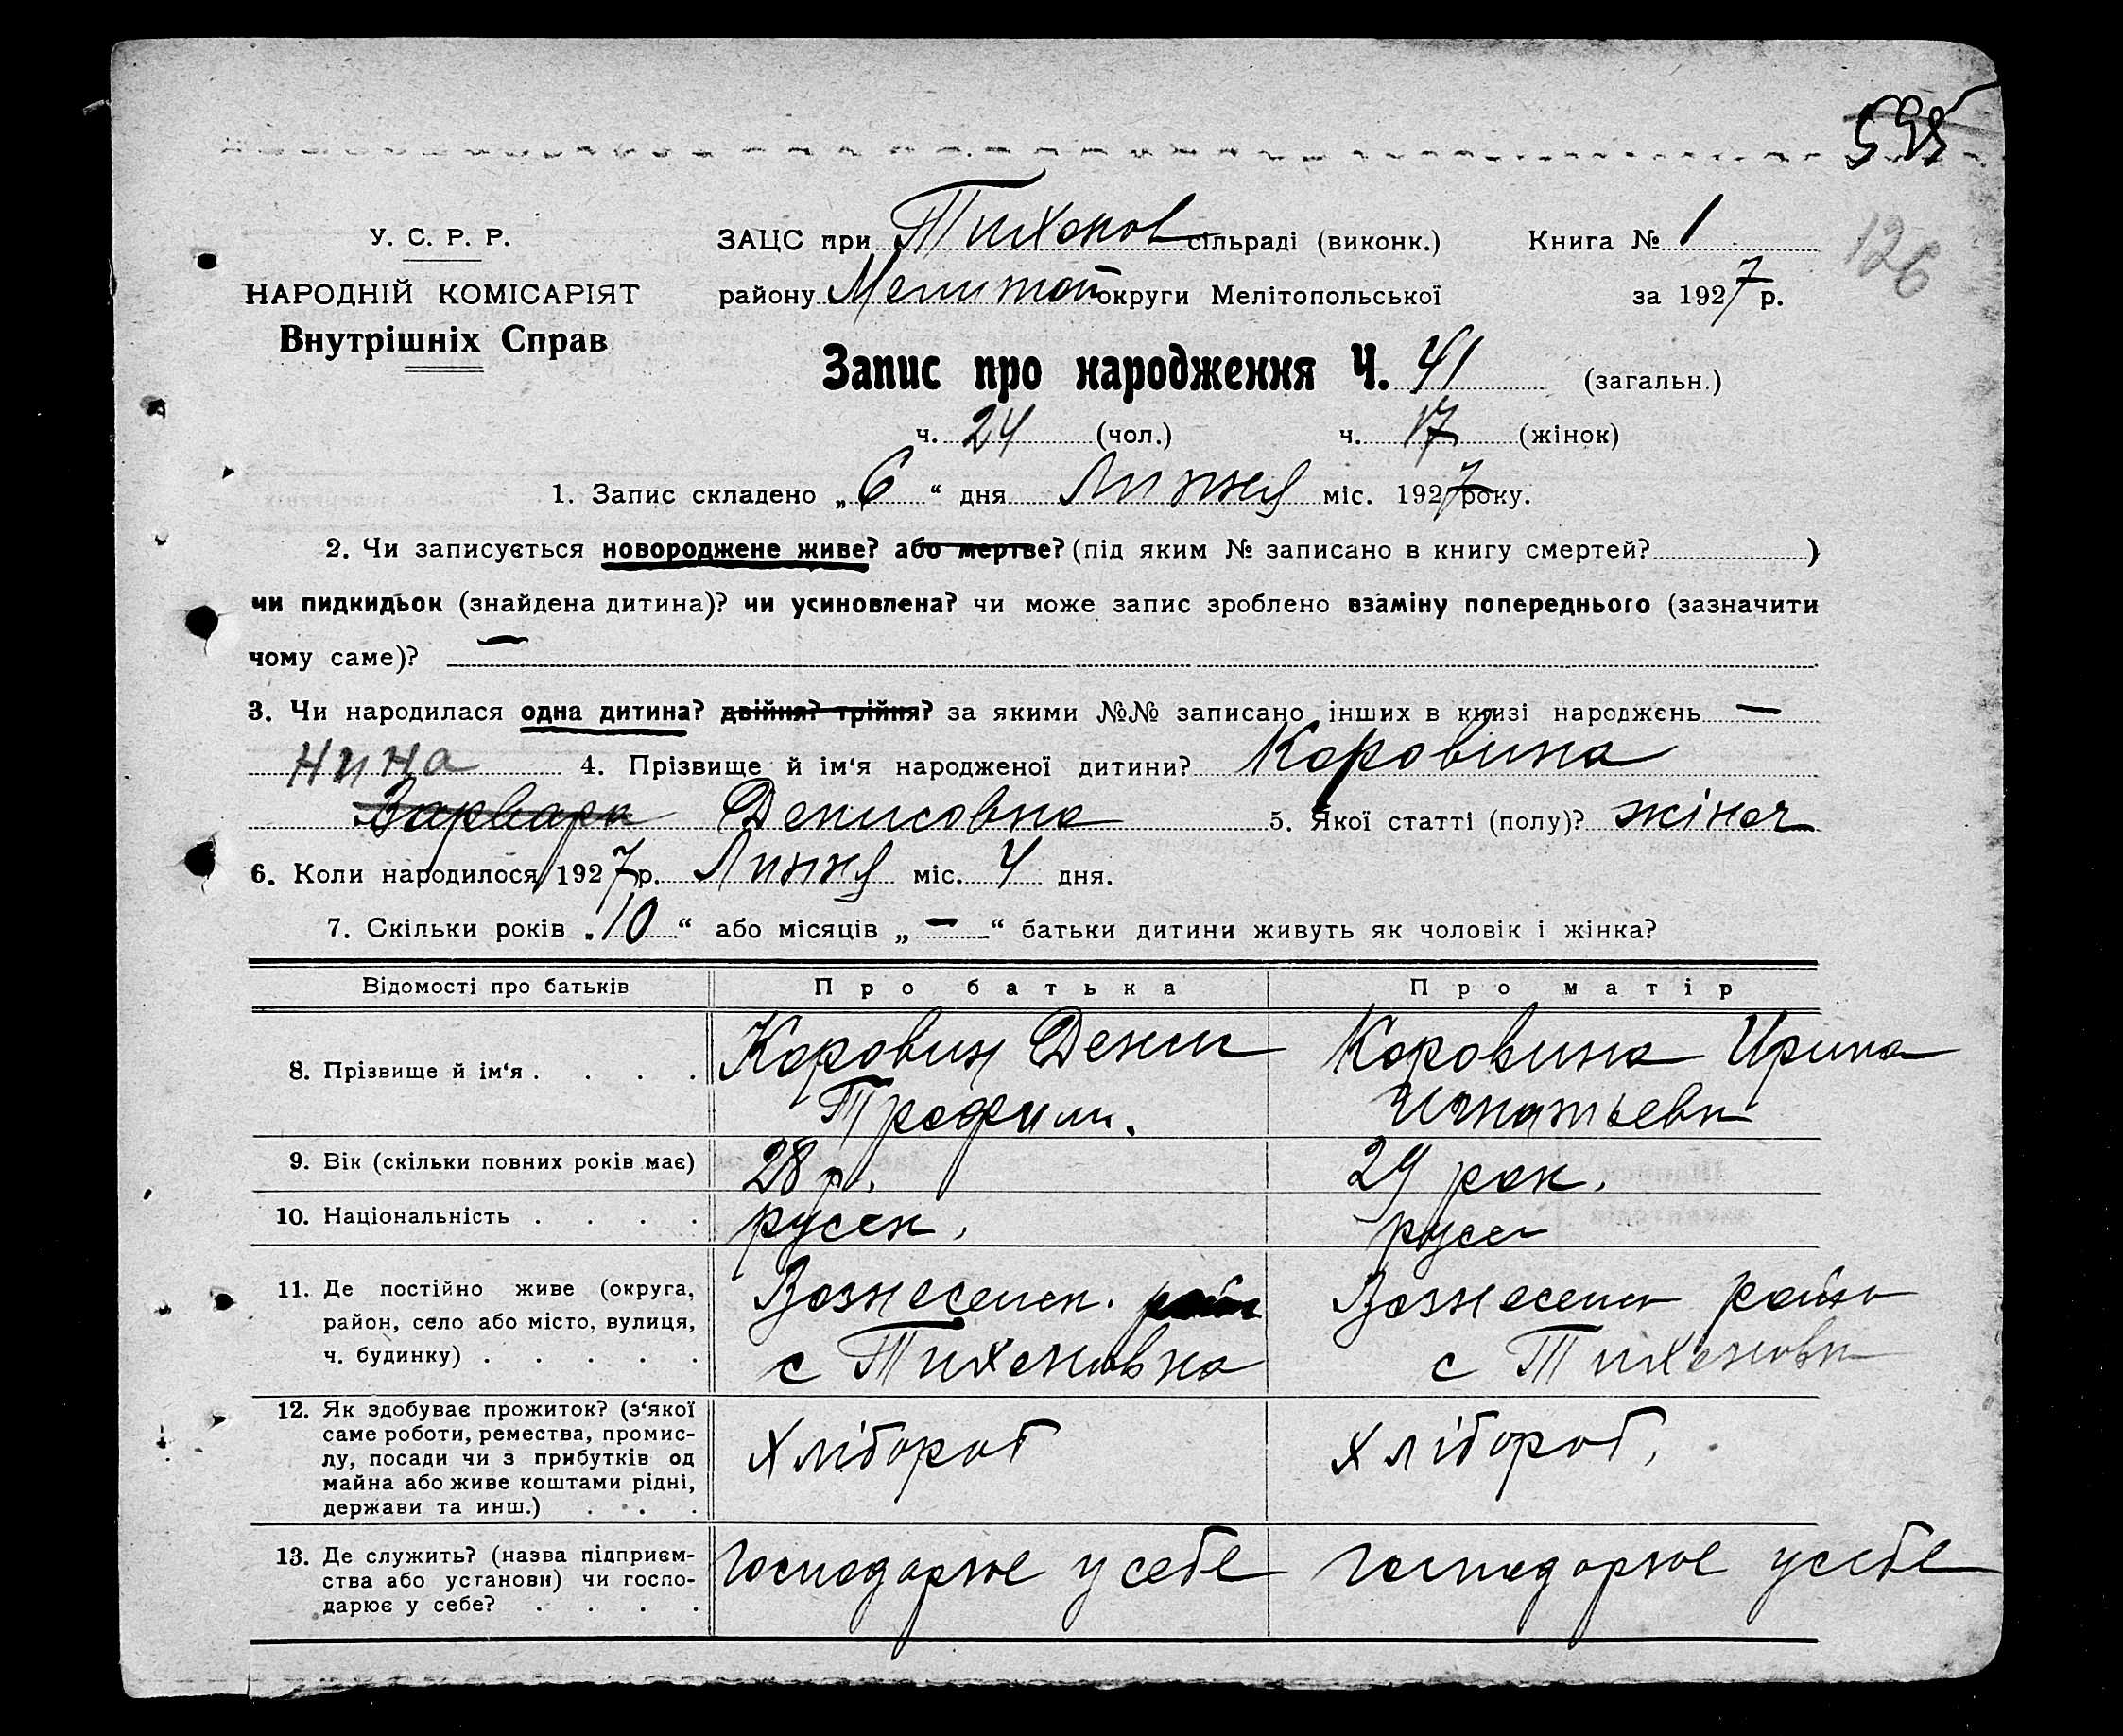 126
У. С. Р. Р.
НАРОДНІЙ КОМІСАРІЯТ
Внутрішніх Справ
ЗАЦС при Тихонов сільраді (виконк.) Книга № 1
району Мелитоп округи Мелітопольської за 1927 р.
Запис про народження Ч. 41 (загальн.)
ч. 24 (чол.) ч. 17 (жінок)
1. Запис складено „ 6 “ дня Липня міс. 1927 року.
2. Чи записується новороджене живе? або мертве? (під яким № записано в книгу смертей? )
чи пидкидьок (знайдена дитина)? чи усиновлена? чи може запис зроблено взаміну попереднього (зазначити
чому саме)? —
3. Чи народилася одна дитина? двійня? трійня? за якими №№ записано інших в книзі народжень —
Нина 4. Прізвище й ім‘я народженої дитини? Коровина
Варвара Денисовна 5. Якої статті (полу)? жіноч
6. Коли народилося 1927 р. Липня міс. 4 дня.
7. Скільки років „ 10 “ або місяців „ — “ батьки дитини живуть як чоловік і жінка?
Відомості про батьків Про батька Про матір
8. Прізвище й ім‘я . . . . Коровин Денис Коровина Ирина
Трофим. Игнатьевн
9. Вік (скільки повних років має) 28 р. 29 рок.
10. Національність . . . . русск. русск
11. Де постійно живе (округа, Вознесенск. район Вознесенск район
район, село або місто, вулиця,
ч. будинку) . . . . . с Тихоновка с Тихоновк
12. Як здобуває прожиток? (з‘якої
саме роботи, ремества, промис-
лу, посади чи з прибутків од Хлібороб Хлібороб,
майна або живе коштами рідні,
держави та инш.) . . .
13. Де служить? (назва підприєм- господарює у себе господарює у себе
ства або установи) чи госпо-
дарює у себе? . . . .